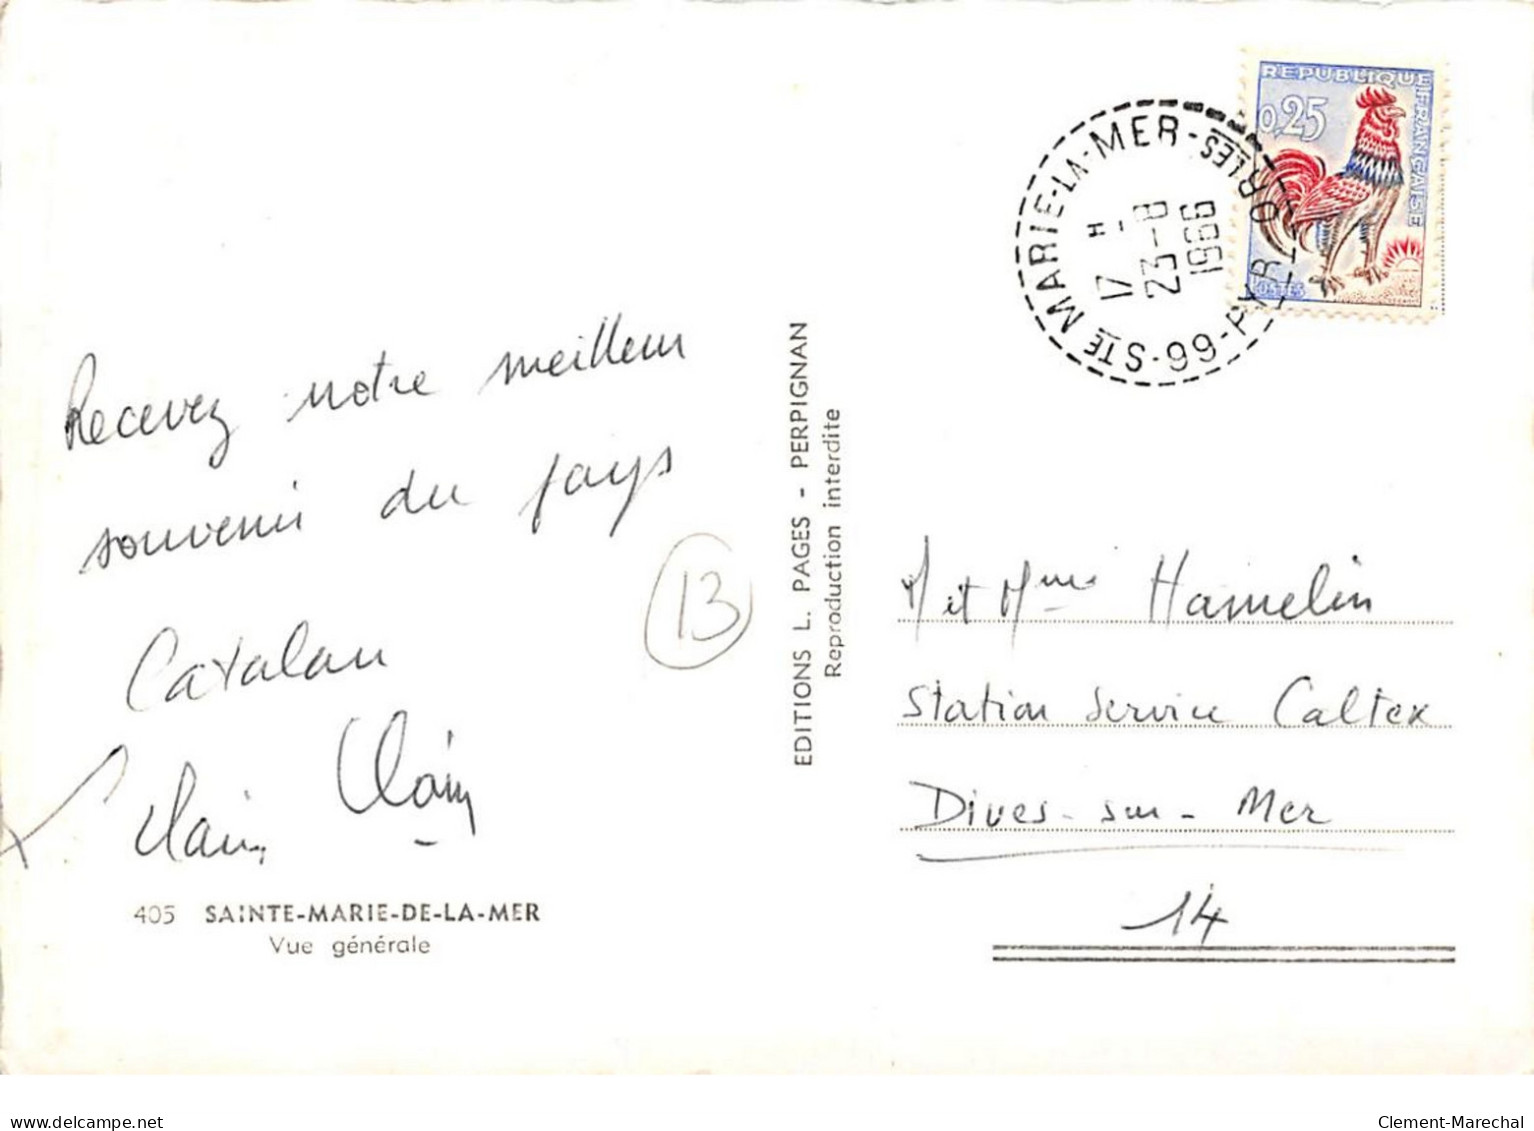 REPUBLIQUE FRANÇAISE
0,25
POSTES
STE MARIE-LA-MER-
17 H
23-8
1966
Recevez notre meilleur
souvenir du pays
Catalan
13
EDITIONS L. PAGES - PERPIGNAN
Reproduction interdite
M et Mme Hamelin
Station Service Caltex
Dives-sur-Mer
14
405 SAINTE-MARIE-DE-LA-MER
Vue générale
Clement-Marechal